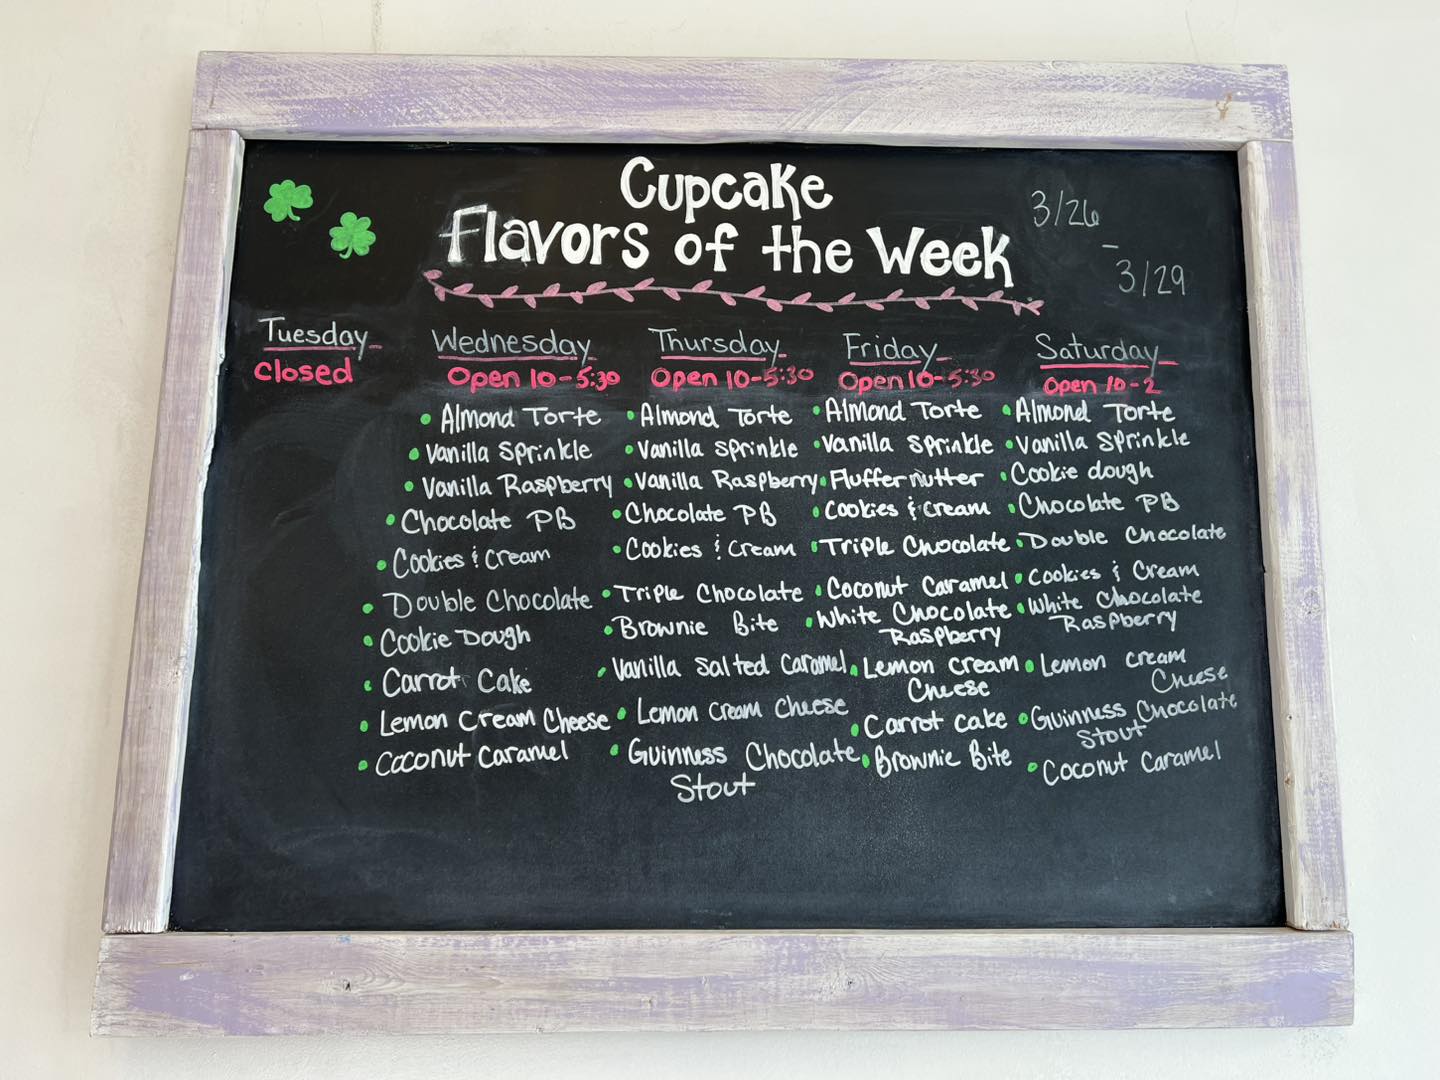 Cupcake
Flavors of the Week
3/26
-
3/29
Tuesday
Closed
Wednesday
Open 10-5:30
• Almond Torte
• Vanilla Sprinkle
• Vanilla Raspberry
• Chocolate PB
• Cookies & Cream
• Double Chocolate
• Cookie Dough
• Carrot Cake
• Lemon Cream Cheese
• Coconut Caramel
Thursday
Open 10-5:30
• Almond Torte
• Vanilla Sprinkle
• Vanilla Raspberry
• Chocolate PB
• Cookies & Cream
• Triple Chocolate
• Brownie Bite
• Vanilla Salted Caramel
• Lemon Cream Cheese
• Guinness Chocolate
Stout
Friday
Open 10-5:30
• Almond Torte
• Vanilla Sprinkle
• Fluffernutter
• Cookies & Cream
• Triple Chocolate
• Coconut Caramel
• White Chocolate
Raspberry
• Lemon Cream
Cheese
• Carrot Cake
• Brownie Bite
Saturday
Open 10-2
• Almond Torte
• Vanilla Sprinkle
• Cookie dough
• Chocolate PB
• Double Chocolate
• Cookies & Cream
• White Chocolate
Raspberry
• Lemon Cream
Cheese
• Guinness Chocolate
Stout
• Coconut Caramel